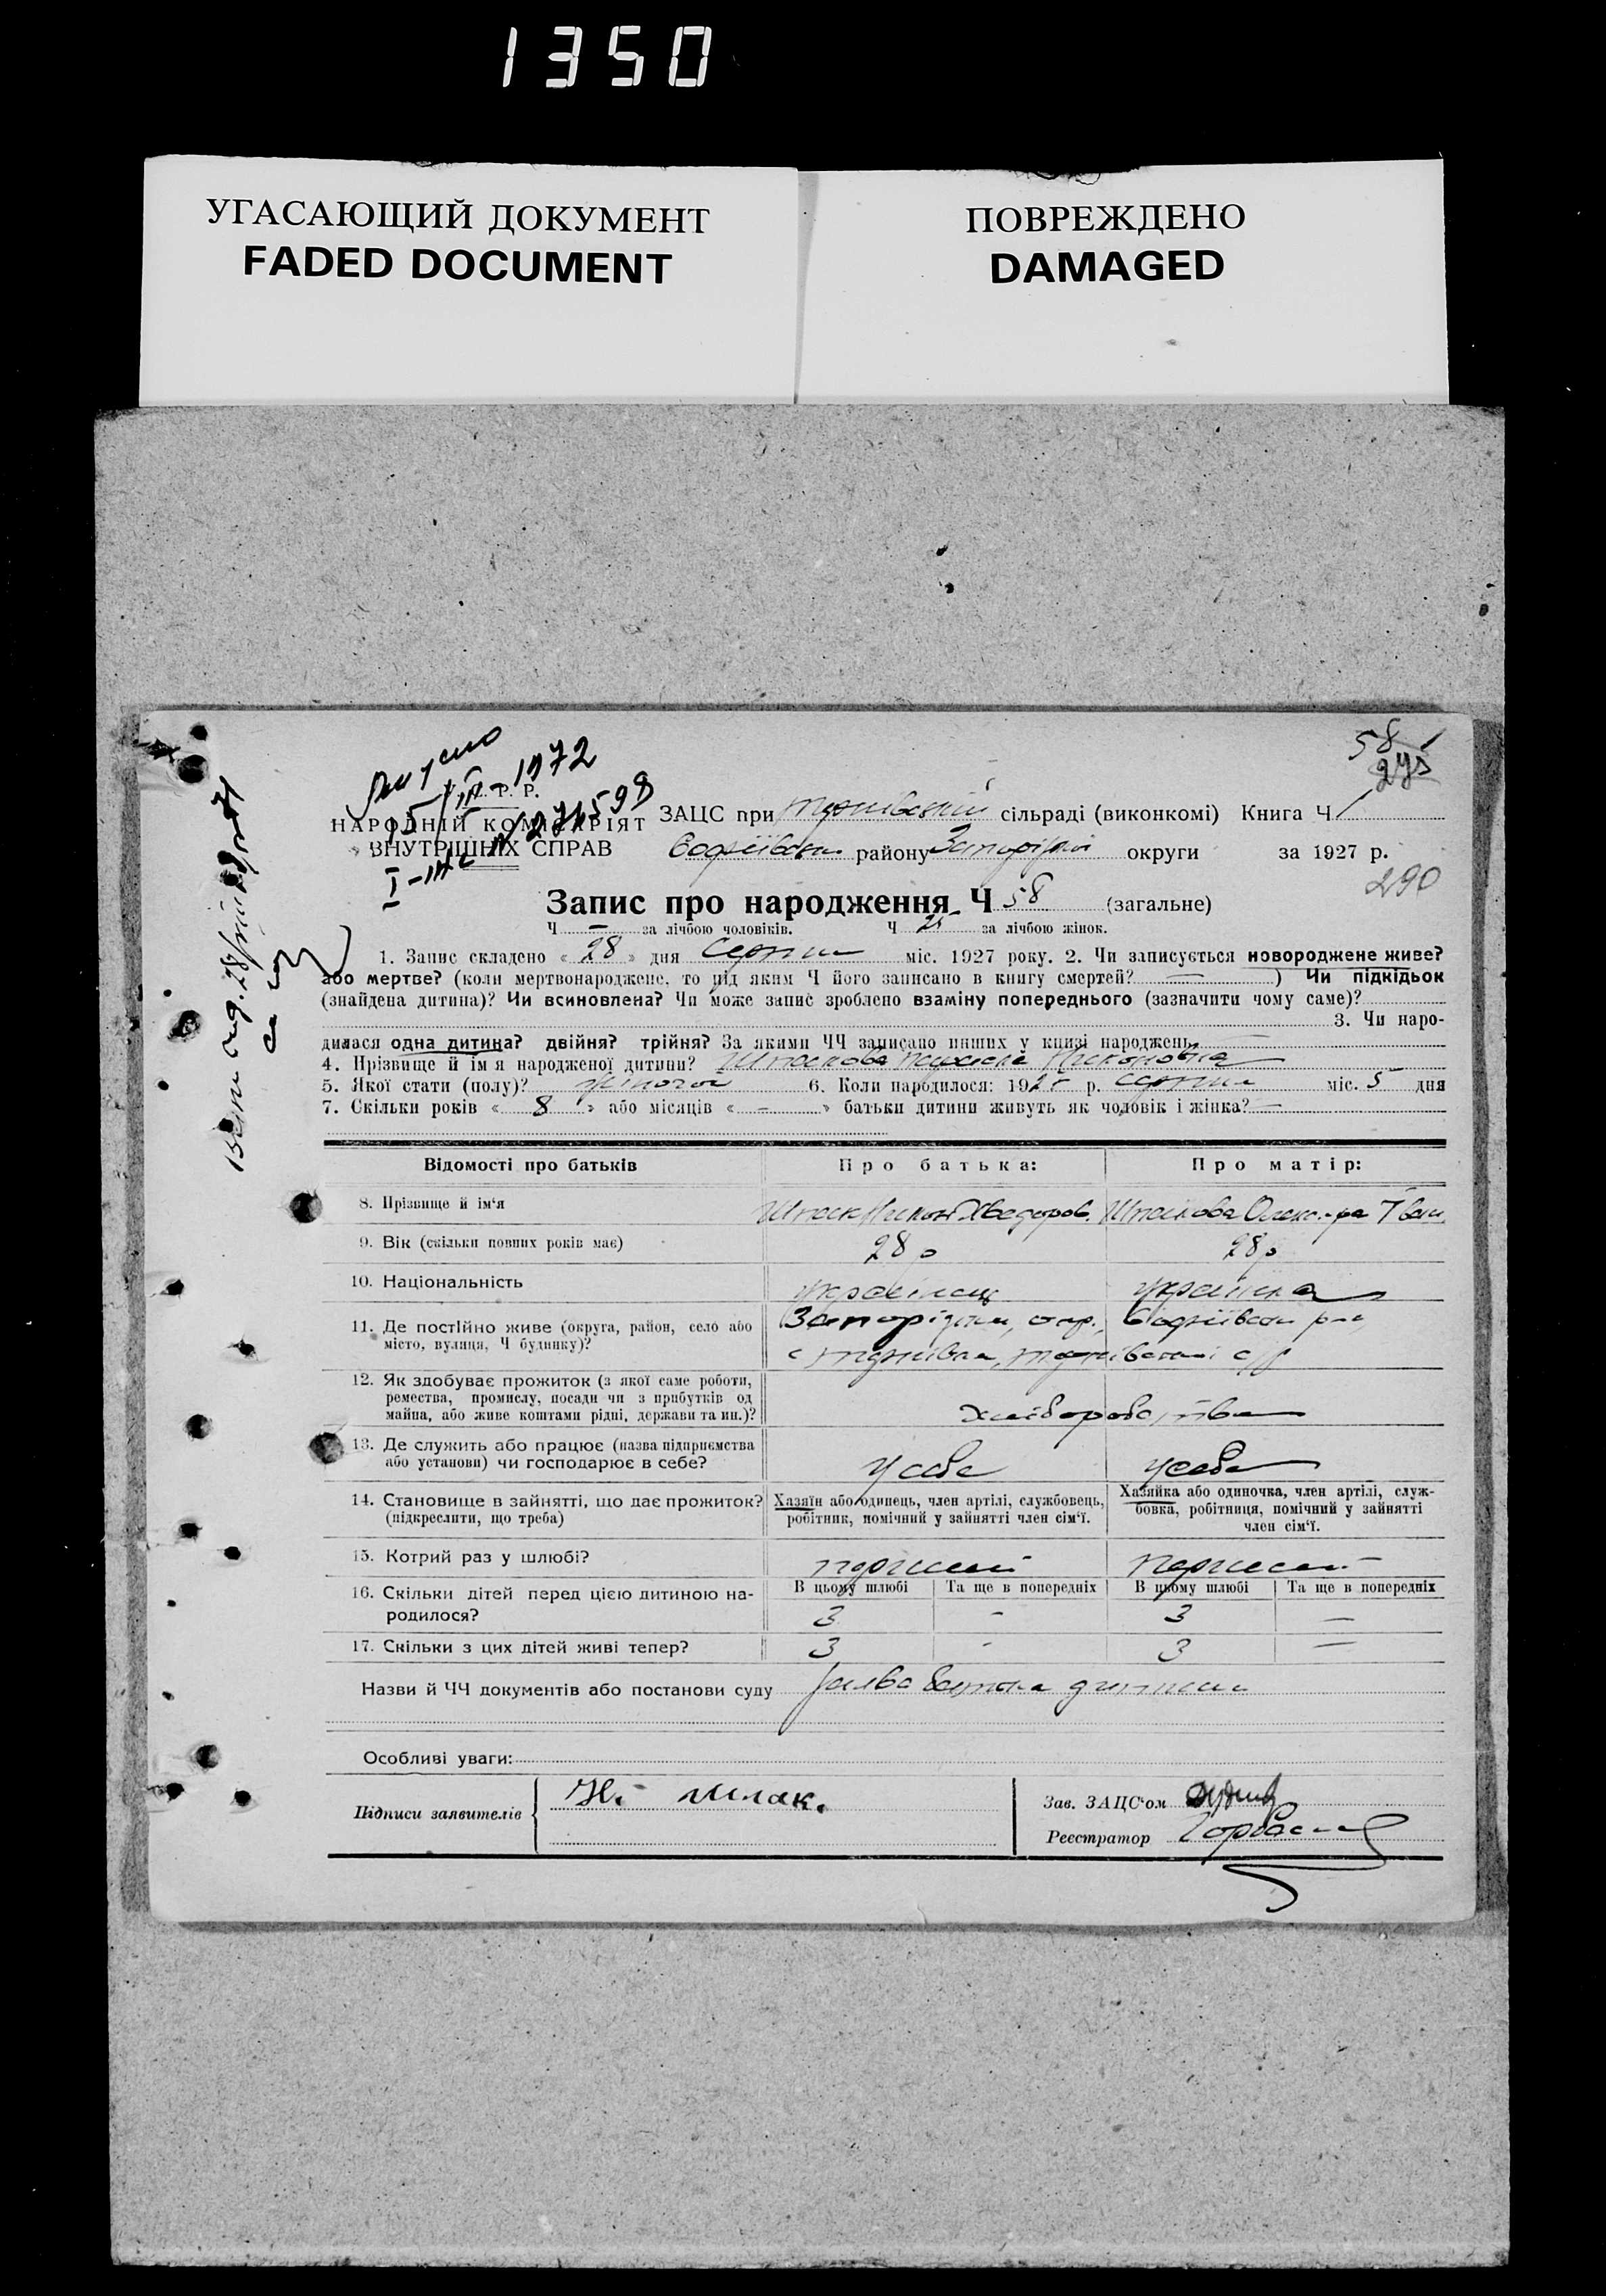 1350
УГАСАЮЩИЙ ДОКУМЕНТ
FADED DOCUMENT
ПОВРЕЖДЕНО
DAMAGED
58
1972
Р. Р.
НАРОДНІЙ КОМІСАРІЯТ
ВНУТРІШНІХ СПРАВ
ЗАЦС при сільраді (виконкомі) Книга Ч 1
району округи за 1927 р.
290
Запис про народження Ч 58 (загальне)
Ч — за лічбою чоловіків. Ч за лічбою жінок.
1. Запис складено « 28 » дня Серпня міс. 1927 року. 2. Чи записується новороджене живе?
або мертве? (коли мертвонароджене, то під яким Ч його записано в книгу смертей? — ) Чи підкідьок
(знайдена дитина)? Чи всиновлена? Чи може запис зроблено взаміну попереднього (зазначити чому саме)?
3. Чи наро-
дилася одна дитина? двійня? трійня? За якими ЧЧ записано инших у книзі народжень
4. Прізвище й ім'я народженої дитини? Шпакова
5. Якої стати (полу)? жіночої 6. Коли народилося: 192 р. серпня міс. 5 дня
7. Скільки років « 8 » або місяців « - » батьки дитини живуть як чоловік і жінка? —
Відомості про батьків Про батька: Про матір:
8. Прізвище й ім'я Шпак Никон Хведоров. Шпакова Олекс-ра Іван.
9. Вік (скільки повних років має) 28 р 28 р
10. Національність українець українка
11. Де постійно живе (округа, район, село або
місто, вулиця, Ч будинку)?
Запоріжжя, окр.,
12. Як здобуває прожиток (з якої саме роботи,
ремества, промислу, посади чи з прибутків од
майна, або живе коштами рідні, держави та ин.)?
хліборобства
13. Де служить або працює (назва підприємства
або установи) чи господарює в себе?
у себе у себе
14. Становище в зайнятті, що дає прожиток?
(підкреслити, що треба)
Хазяїн або одинець, член артілі, службовець,
робітник, помічний у зайнятті член сім'ї.
Хазяйка або одиночка, член артілі, служ-
бовка, робітниця, помічний у зайнятті
член сім'ї.
15. Котрий раз у шлюбі? перший перший
16. Скільки дітей перед цією дитиною на-
родилося?
В цьому шлюбі Та ще в попередніх В цьому шлюбі Та ще в попередніх
3 - 3 —
17. Скільки з цих дітей живі тепер? 3 - 3 —
Назви й ЧЧ документів або постанови суду Заява батька дитини
Особливі уваги:
Підписи заявителів Н. Шпак.
Зав. ЗАЦС'ом
Реєстратор